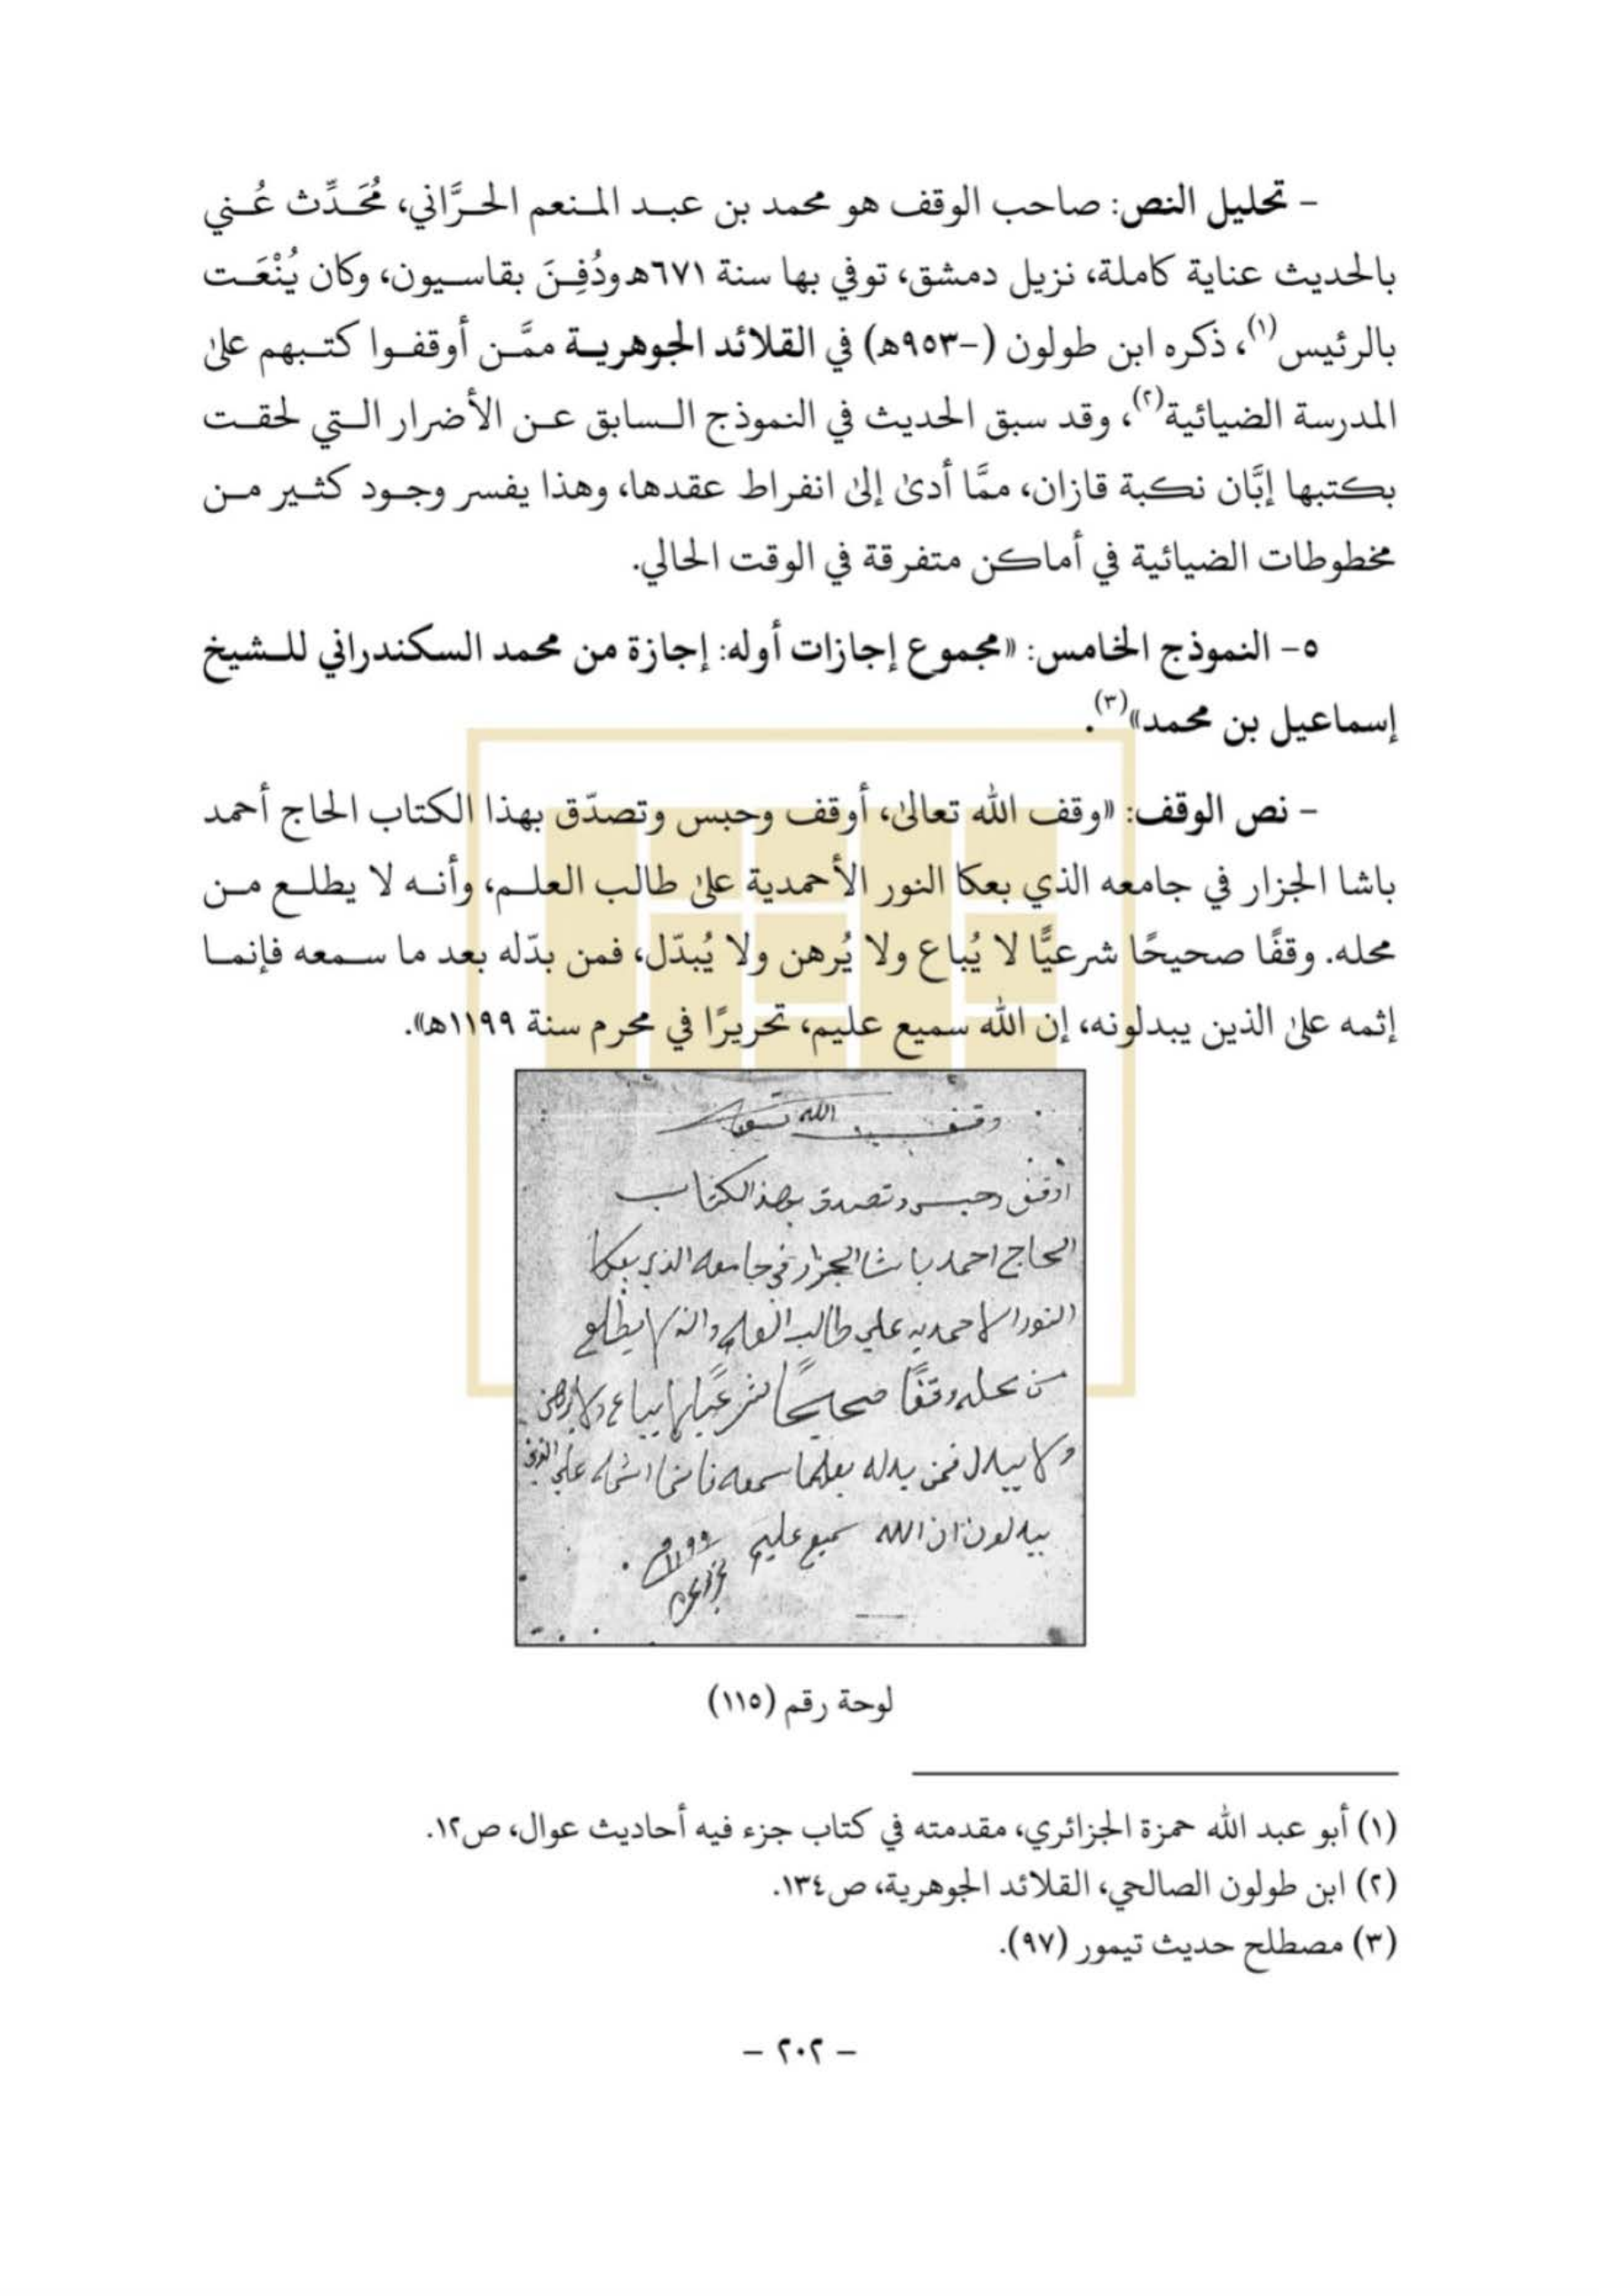 – تحليل النص: صاحب الوقف هو محمد بن عبد المنعم الحرَّاني، مُحَدِّث عُني
بالحديث عناية كاملة، نزيل دمشق، توفي بها سنة ٦٧١هـ ودُفِنَ بقاسيون، وكان يُنْعَت
بالرئيس(١)، ذكره ابن طولون (-٩٥٣هـ) في القلائد الجوهرية ممَّن أوقفوا كتبهم على
المدرسة الضيائية(٢)، وقد سبق الحديث في النموذج السابق عن الأضرار التي لحقت
بكتبها إبَّان نكبة قازان، ممَّا أدى إلى انفراط عقدها، وهذا يفسر وجود كثير من
مخطوطات الضيائية في أماكن متفرقة في الوقت الحالي.
٥- النموذج الخامس: «مجموع إجازات أوله: إجازة من محمد السكندراني للشيخ
إسماعيل بن محمد»(٣).
– نص الوقف: «وقف الله تعالى، أوقف وحبس وتصدّق بهذا الكتاب الحاج أحمد
باشا الجزار في جامعه الذي بعكا النور الأحمدية على طالب العلم، وأنه لا يطلع من
محله. وقفًا صحيحًا شرعيًّا لا يُباع ولا يُرهن ولا يُبدّل، فمن بدّله بعد ما سمعه فإنما
إثمه على الذين يبدلونه، إن الله سميع عليم، تحريرًا في محرم سنة ١١٩٩هـ».
وقف الله تعالى
اوقف وحبس وتصدق بهذا الكتاب
الحاج احمد باشا الجزار في جامعه الذي بعكا
النور الاحمديه علي طالب العلم وانه لا يطلع
من محله وقفًا صحيحًا شرعيًا لا يباع ولا يرهن
ولا يبدل فمن بدله بعدما سمعه فانما اثمه علي الذين
يبدلونه ان الله سميع عليم ١١٩٩
لوحة رقم (١١٥)
(١) أبو عبد الله حمزة الجزائري، مقدمته في كتاب جزء فيه أحاديث عوال، ص١٢.
(٢) ابن طولون الصالحي، القلائد الجوهرية، ص١٣٤.
(٣) مصطلح حديث تيمور (٩٧).
– ٢٠٢ –